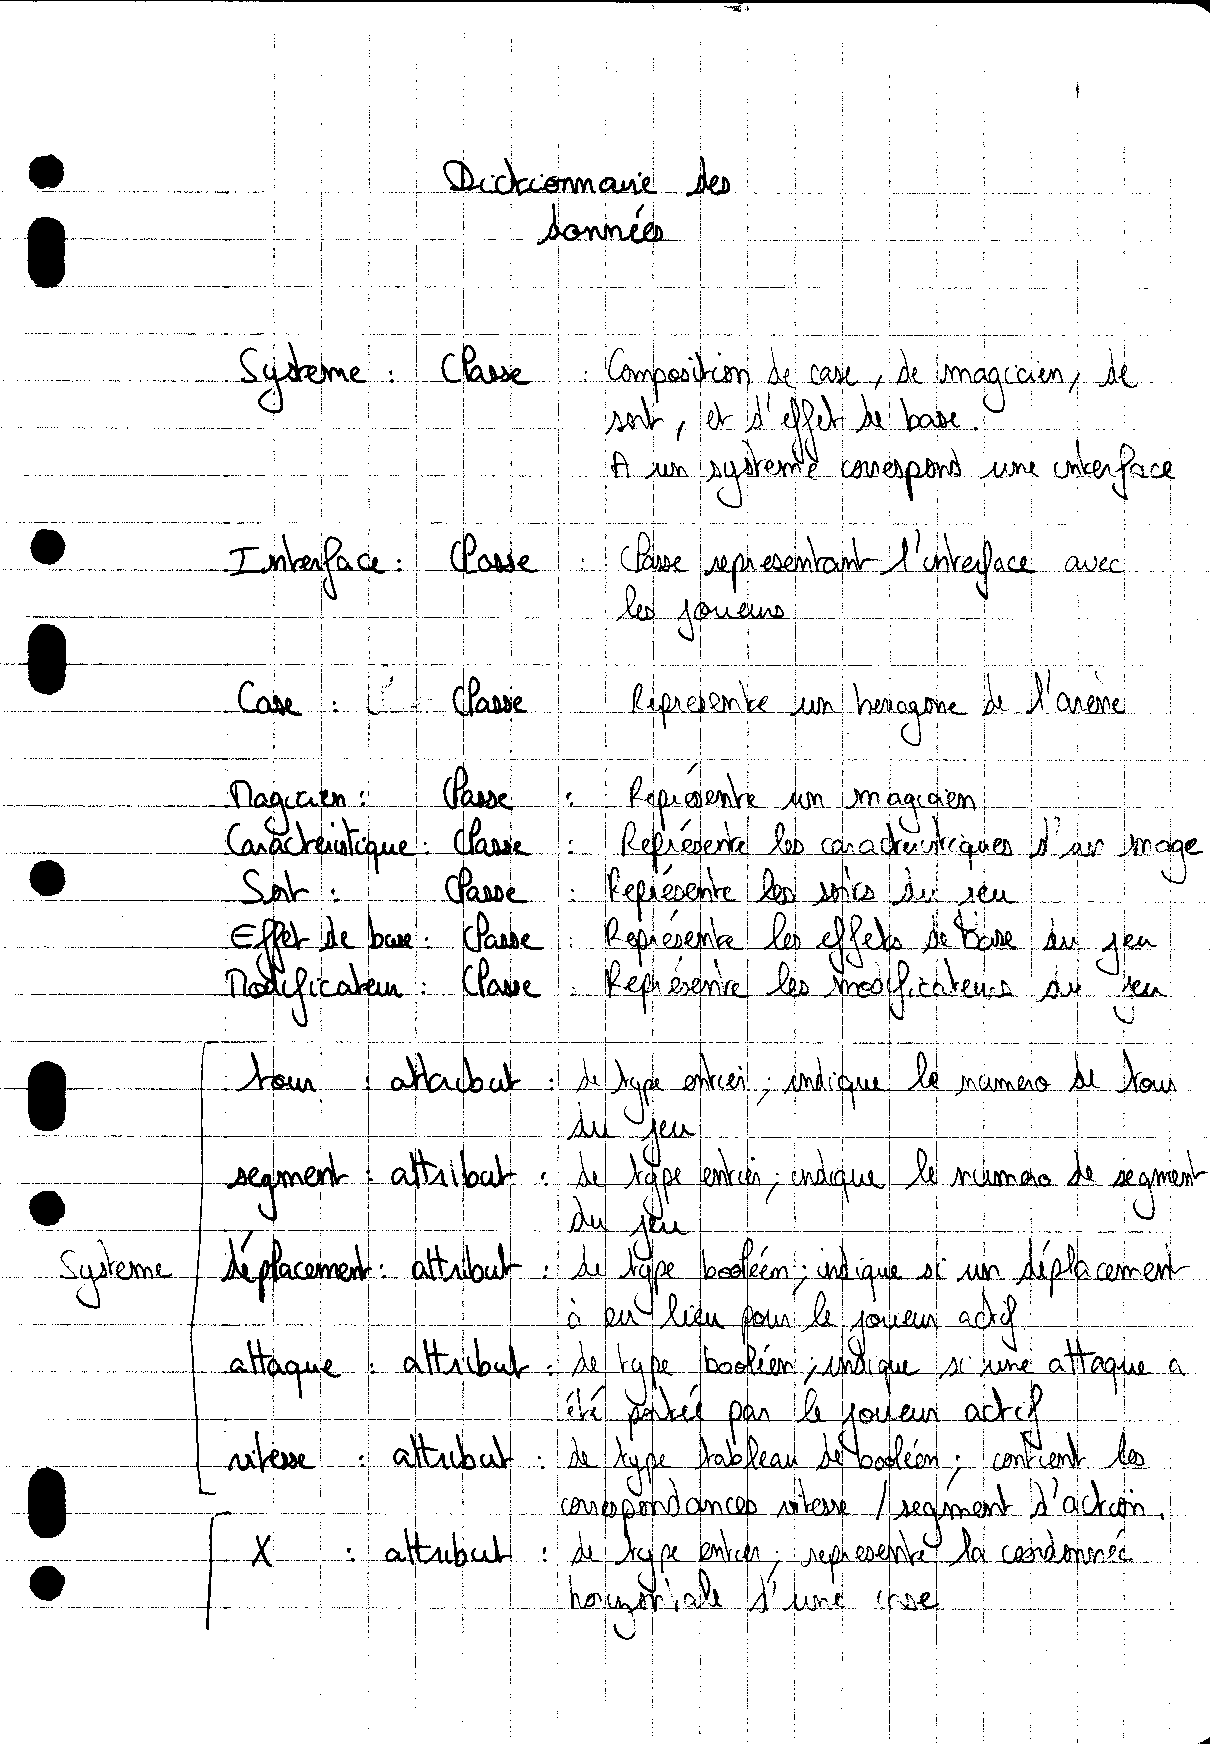 Dictionnaire des
données
Systeme : Classe : Composition de case, de magicien, de
sort, et d'effet de base.
A un systeme correspond une interface
Interface : Classe : Classe representant l'interface avec
les joueurs
Case : Classe Représente un hexagone de l'arène
Magicien : Classe : Représente un magicien
Caractéristique : Classe : Représente les caractéristiques d'un mage
Sort : Classe : Représente les sorts du jeu
Effet de base : Classe : Représente les effets de base du jeu
Modificateur : Classe : Représente les modificateurs du jeu
tour : attribut : de type entier ; indique le numero de tour
du jeu
segment : attribut : de type entier ; indique le numero de segment
du jeu
Systeme déplacement : attribut : de type booléen ; indique si un déplacement
à eu lieu pour le joueur actif
attaque : attribut : de type booléen ; indique si une attaque a
été portée par le joueur actif
vitesse : attribut : de type tableau de booléen ; contient les
correspondances vitesse / segment d'action.
X : attribut : de type entier ; represente la coordonnée
horizontale d'une case